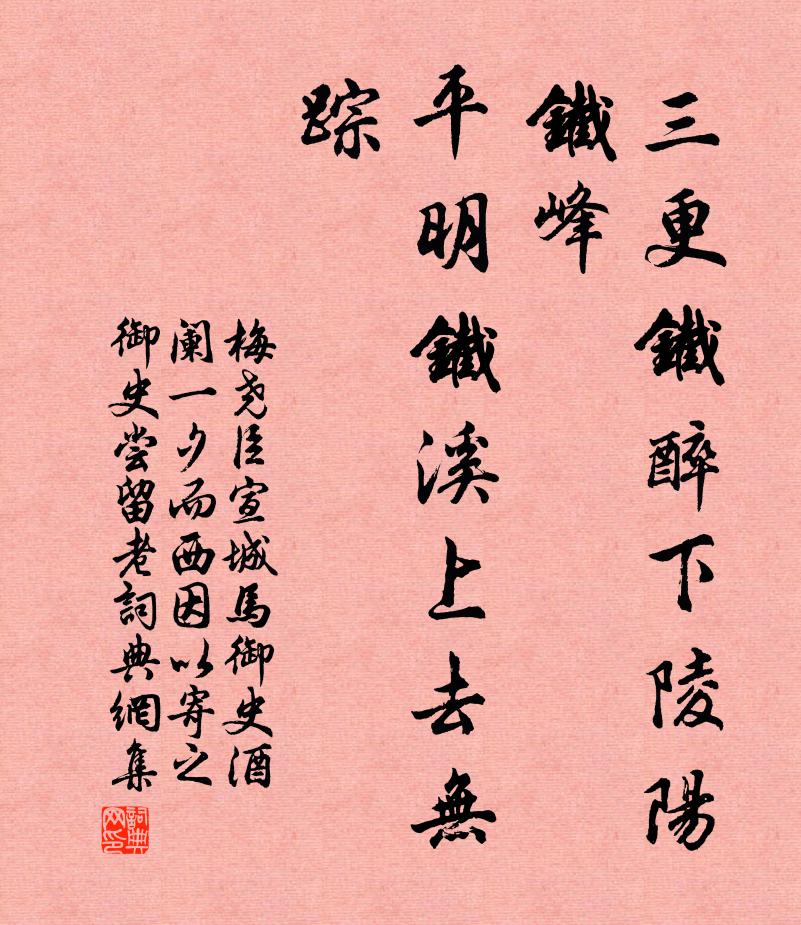 三更鐵醉下陵陽
鐵峰
平明鐵溪上去無
踪
梅尧臣宣城馬御史酒
阑一夕而西因以寄之
御史尝留老詞典網集
詞典
网印